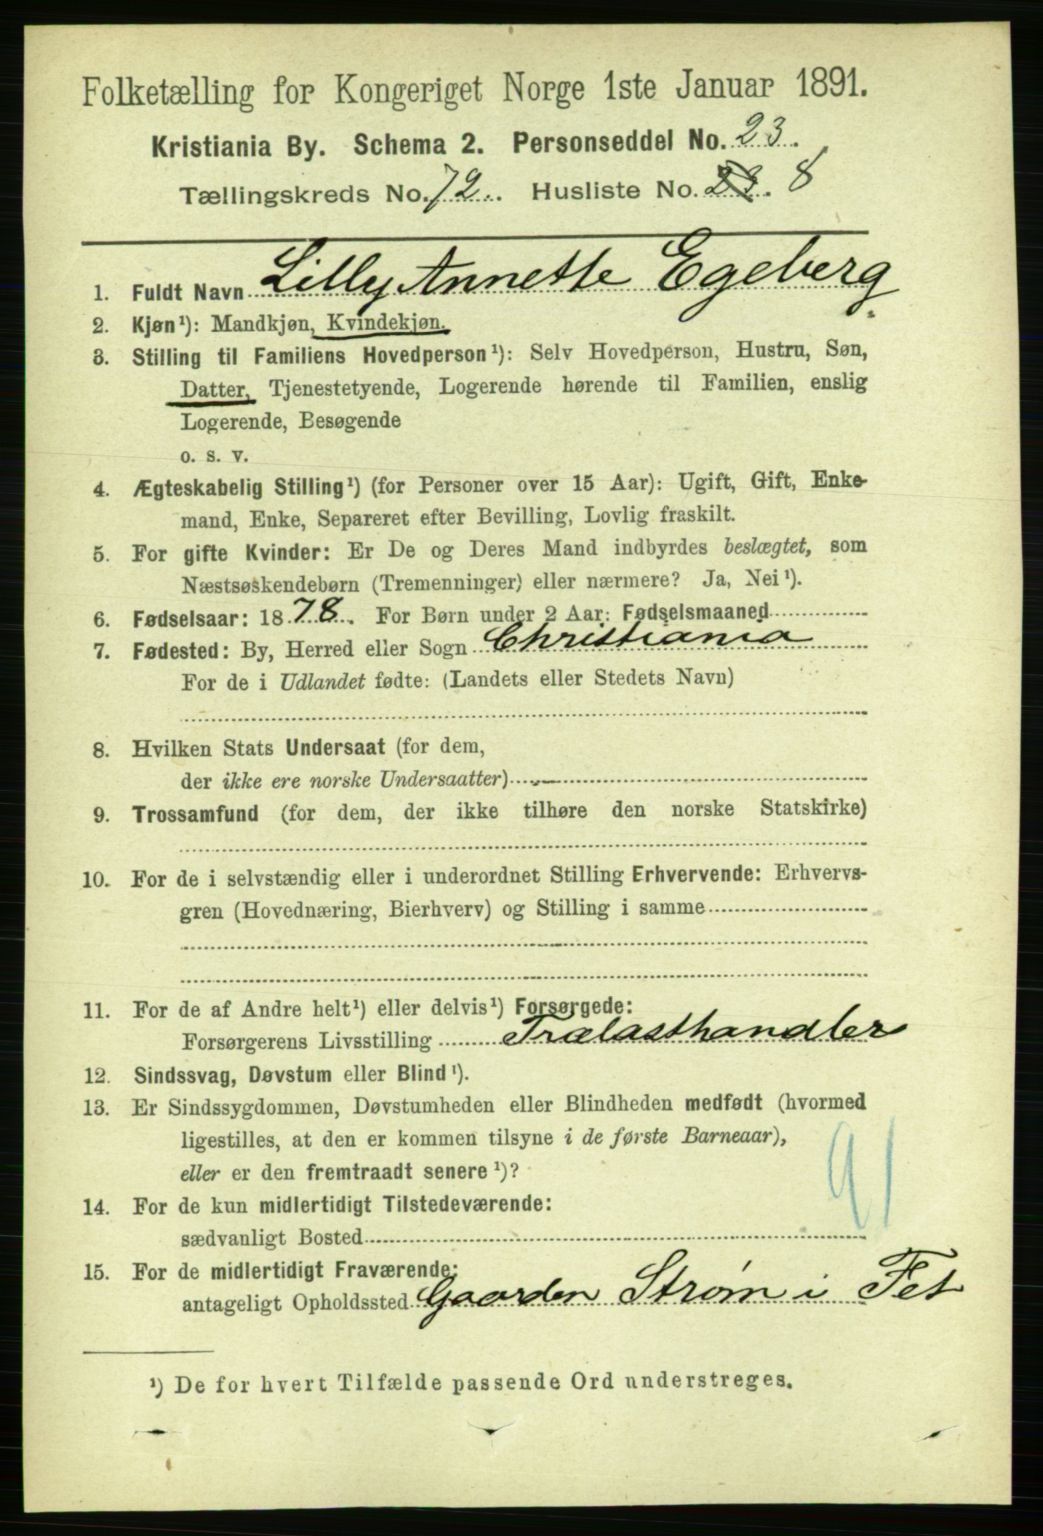 Folketælling for Kongeriget Norge 1ste Januar 1891.
Kristiania By. Schema 2. Personseddel No. 23.
Tællingskreds No. 72. Husliste No. 23. 8
1. Fuldt Navn Lilly Annette Egeberg.
2. Kjøn¹): Mandkjøn, Kvindekjøn.
3. Stilling til Familiens Hovedperson¹): Selv Hovedperson, Hustru, Søn,
Datter, Tjenestetyende, Logerende hørende til Familien, enslig
Logerende, Besøgende
o. s. v.
4. Ægteskabelig Stilling¹) (for Personer over 15 Aar): Ugift, Gift, Enke-
mand, Enke, Separeret efter Bevilling, Lovlig fraskilt.
5. For gifte Kvinder: Er De og Deres Mand indbyrdes beslægtet, som
Næstsøskendebørn (Tremenninger) eller nærmere? Ja, Nei¹).
6. Fødselsaar: 1878. For Børn under 2 Aar: Fødselsmaaned
7. Fødested: By, Herred eller Sogn Christiania
For de i Udlandet fødte: (Landets eller Stedets Navn)
8. Hvilken Stats Undersaat (for dem,
der ikke ere norske Undersaatter)
9. Trossamfund (for dem, der ikke tilhøre den norske Statskirke)
10. For de i selvstændig eller i underordnet Stilling Erhvervende: Erhvervs-
gren (Hovednæring, Bierhverv) og Stilling i samme
11. For de af Andre helt¹) eller delvis¹) Forsørgede:
Forsørgerens Livsstilling Trælasthandler
12. Sindssvag, Døvstum eller Blind¹).
13. Er Sindssygdommen, Døvstumheden eller Blindheden medfødt (hvormed
ligestilles, at den er kommen tilsyne i de første Barneaar),
eller er den fremtraadt senere¹)?
91
14. For de kun midlertidigt Tilstedeværende:
sædvanligt Bosted
15. For de midlertidigt Fraværende:
antageligt Opholdssted Gaarden Strøm i Fet
¹) De for hvert Tilfælde passende Ord understreges.